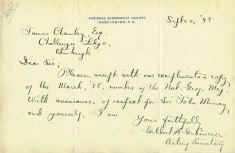 NATIONAL GEOGRAPHIC SOCIETY
WASHINGTON, D.C.
Sept 2, '98
James Chumley, Esq.
Challenger Lodge,
Edinburgh
Dear Sir;
Please accept with our complimentary copy
of the March, '98, number of the Nat. Geog. Mag.
With assurances of respect for Sir John Murray,
and yourself, I am
Yours faithfully
Acting Secretary